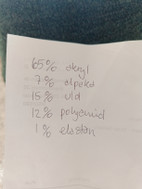 65% akryl
7% alpaka
15% uld
12% polyamid
1% elastan